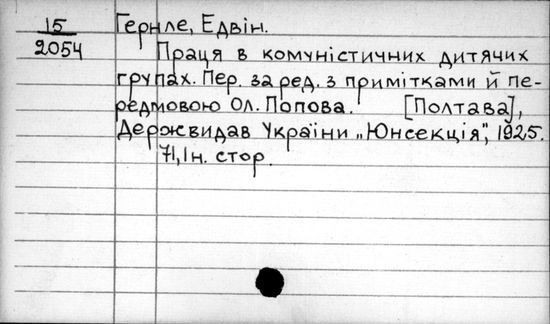 15
2054
Гернле, Едвін.
Праця в комуністичних дитячих
групах. Пер. за ред. з примітками й пе-
редмовою Ол. Попова. [Полтава],
Держвидав України „Юнсекція", 1925.
71, 1 н. стор.